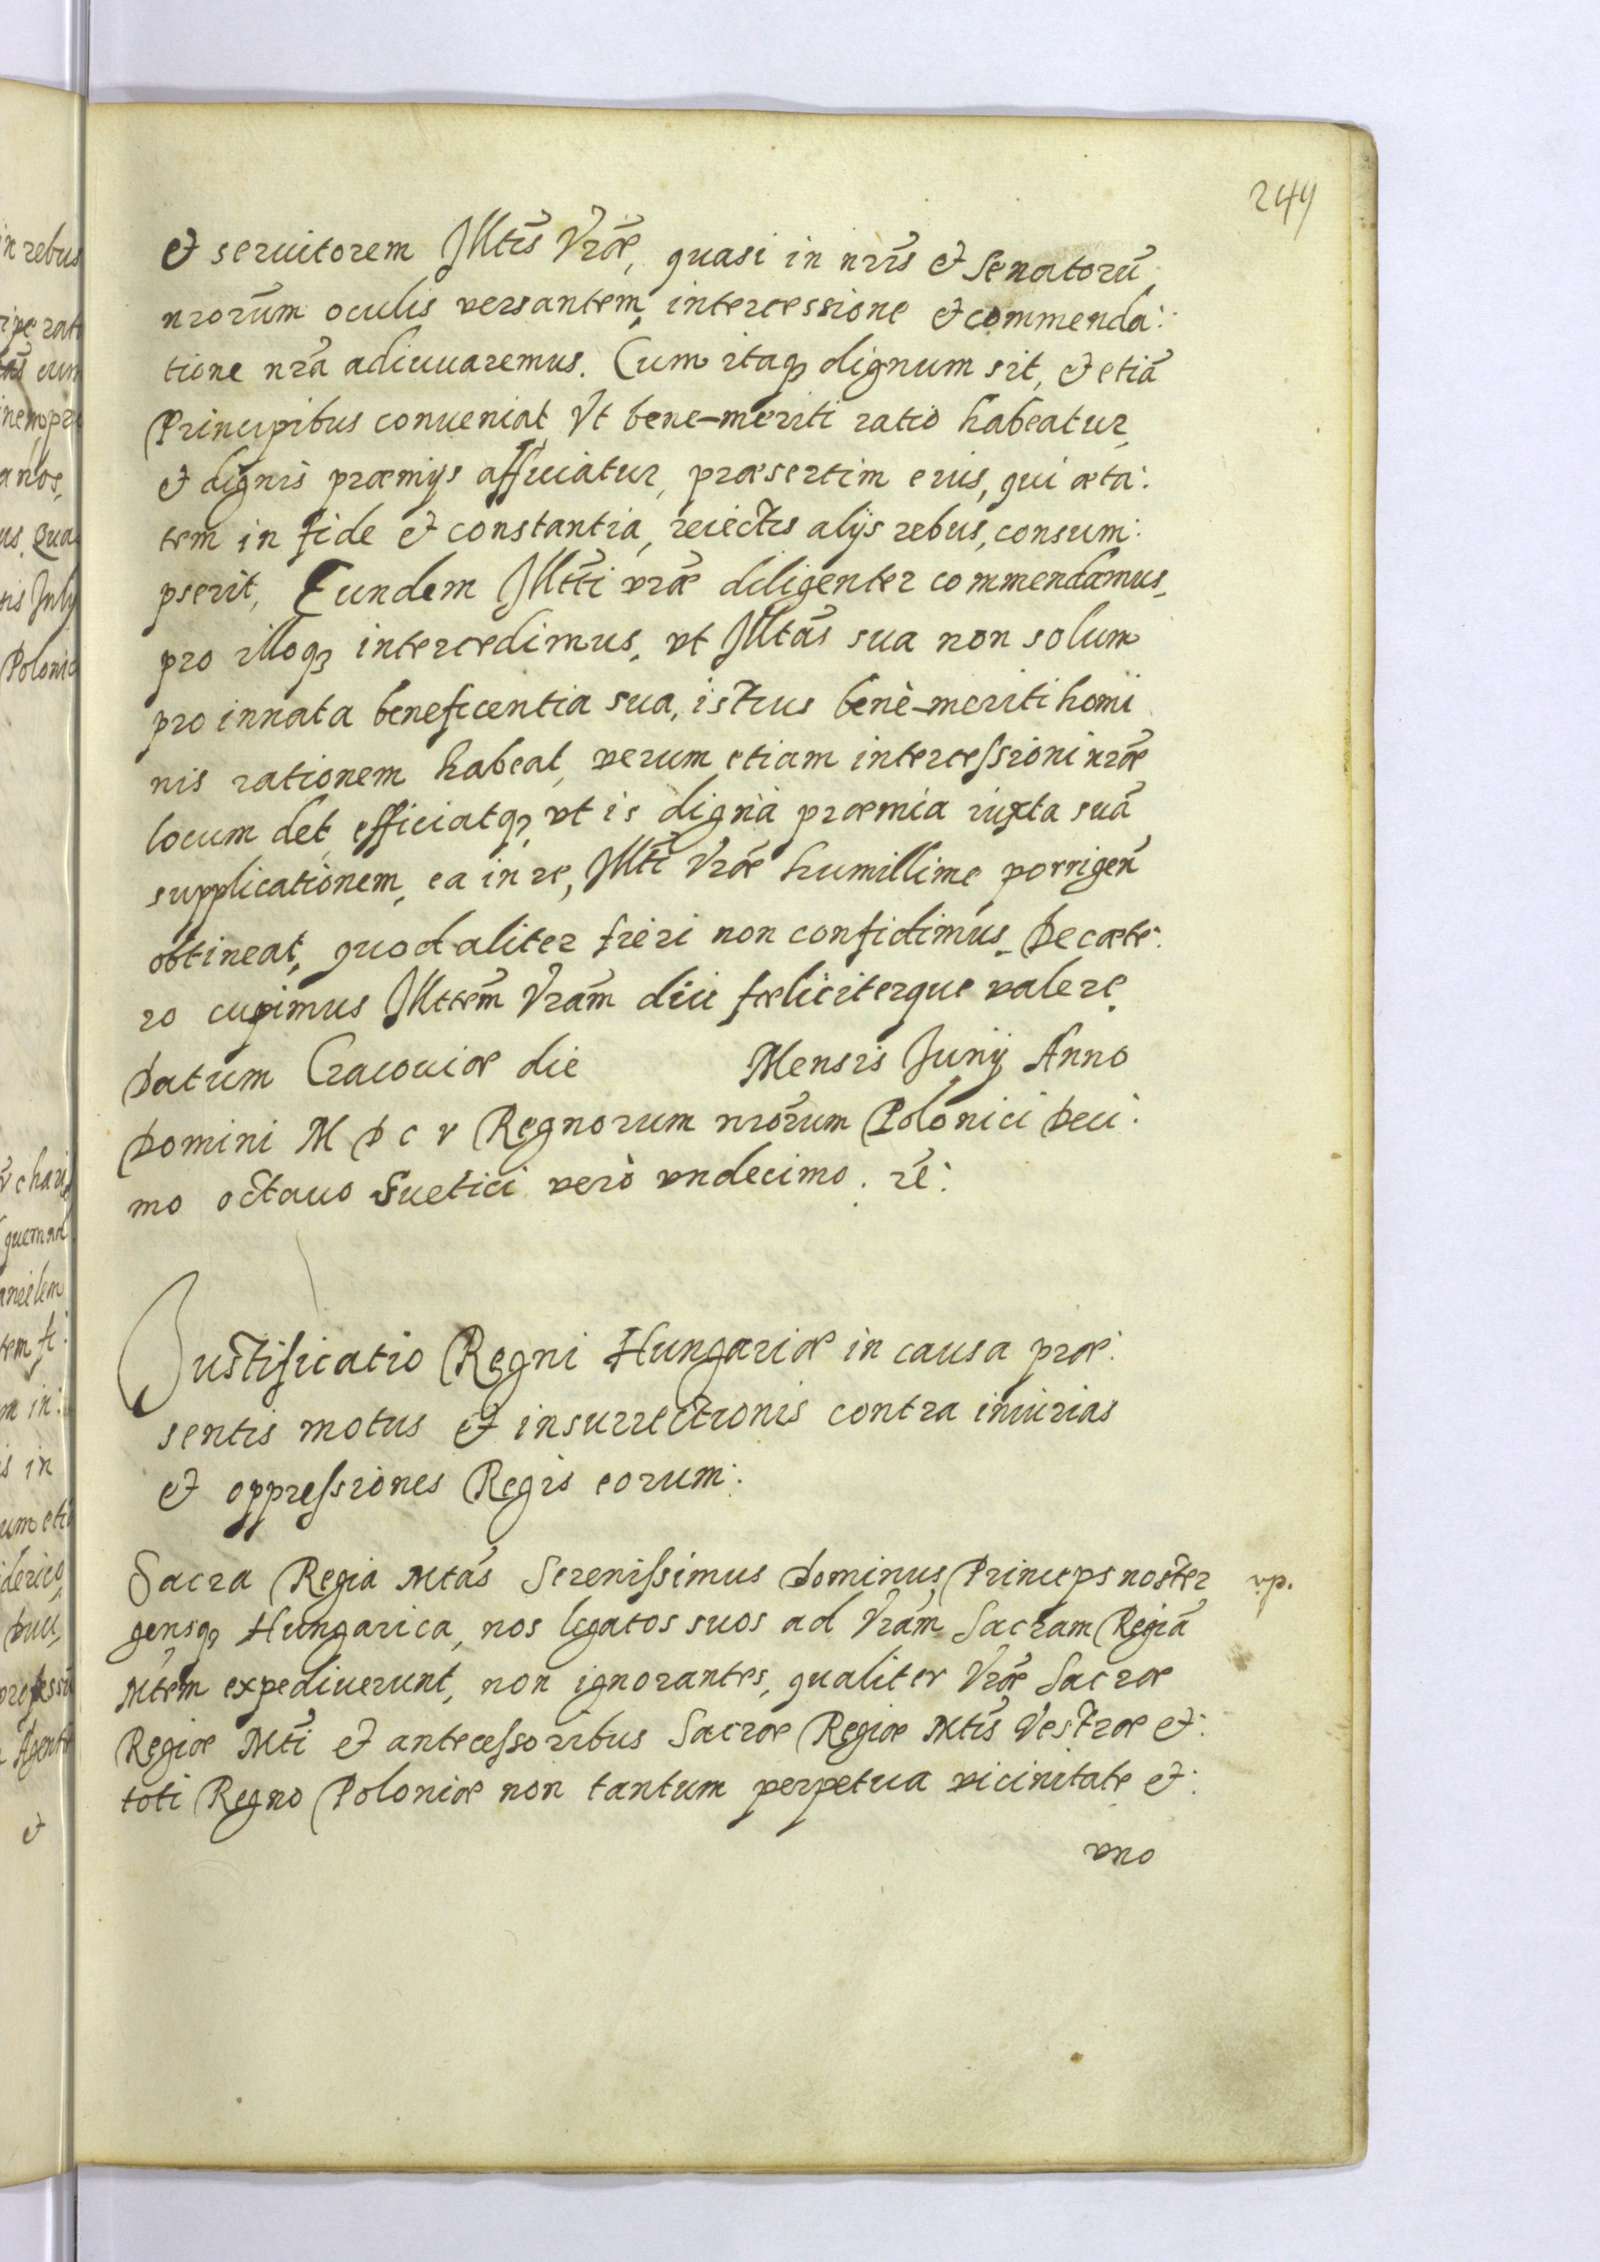 244
& seruitorem JMtis Vrãe, quasi in nris̃ & Senatorũ
nrorũm oculis versantem, intercessione & commenda:
tione nrã adiuuaremus. Cum itaq3 dignum sit, & etiã
Principibus conueniat Vt bene-meriti ratio habeatur
& dignis præmijs afficiatur, præsertim eius, qui æta:
tem in fide & constantia, reiectis alijs rebus, consum:
pserit, Eundem JMtti vrãe diligenter commendamus,
pro illoq3 intercedimus, vt JMtãs sua non solum
pro innata beneficentia sua, istius benè-meriti homi
nis rationem habeat, verum etiam intercessioni nrãe
locum det, efficiatq3, vt is digna præmia iuxta suã
supplicationem, ea in re, JMtti Vrãe humillime porrigen̄
obtineat, quod aliter fieri non confidimus. De cæte:
ro cupimus JMttem̃ Vrãm diu fœliciterque valere
Datum Cracouiæ die Mensis Junij Anno
Domini M D C V Regnorum nrorũm Polonici Deci:
mo octauo Suetici verò vndecimo. rẽ:
Justificatio Regni Hungariæ in causa præ:
sentis motus & insurrectionis contra iniurias
& oppressiones Regis eorum:
Sacra Regia Mtãs Serenissimus Dominus Princeps noster
vp.
gensq3 Hungarica, nos legatos suos ad Vrãm Sacram Regiã
Mtẽm expediuerunt, non ignorantes, qualiter Vrãe Sacræ
Regiæ Mtĩ & antecessoribus Sacræ Regiæ Mtĩs Vestræ &:
toti Regno Poloniæ non tantum perpetua vicinitate &:
vno